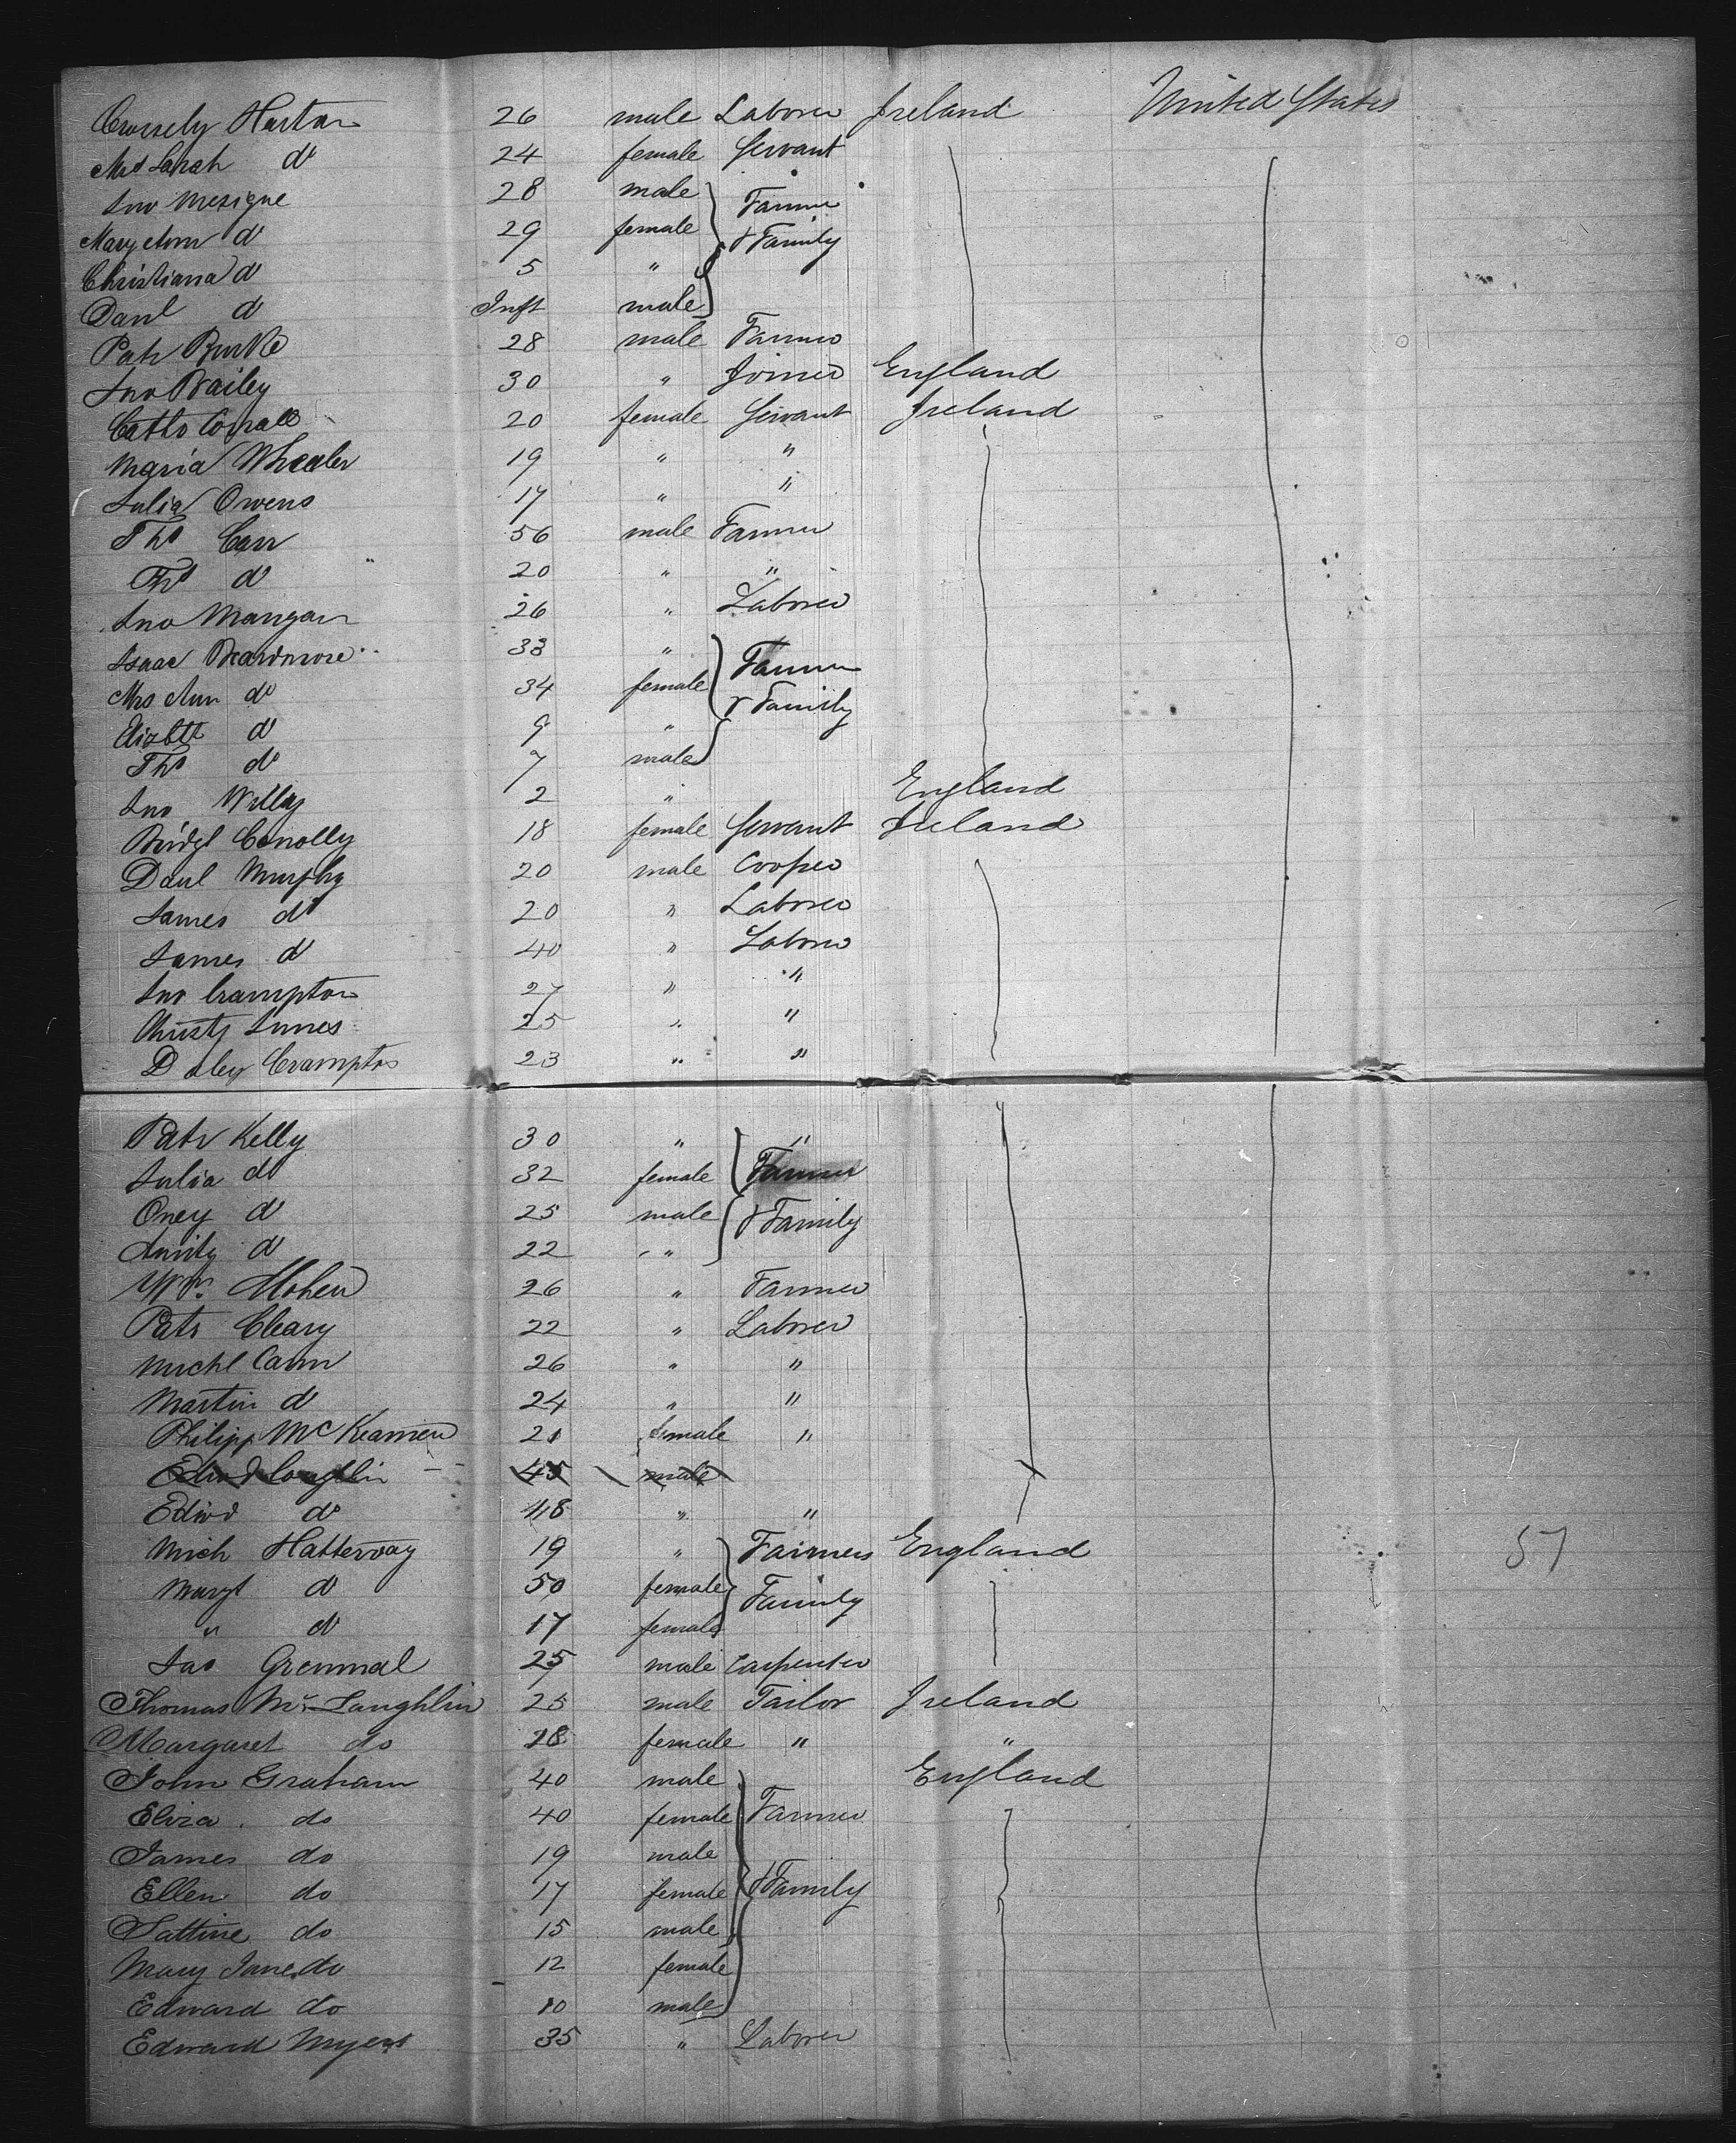 Horton 26 male Laborer Ireland United States
Mrs Sarah do 24 female Servant
Jno 28 male Farmer
Mary Ann do 29 female & Family
Christiana do 5 "
Danl do Inft male
Patk Burke 28 male Farmer
Jno Bailey 30 " Joiner England
Cath 20 female Servant Ireland
Maria Wheeler 19 " "
Julia Owens 17 " "
Thos Carr 56 male Farmer
Thos do 20 " "
Jno Mangan 26 " Laborer
Isaac Beardmore 33 " Farmer
Mrs Ann do 34 female & Family
Elizbth do 9 "
Thos do 7 male
Jno Willy 2 " England
Bridgt Conolly 18 female Servant Ireland
Danl Murphy 20 male Cooper
James do 20 " Laborer
James do 40 " Laborer
Jno Crampton 27 " "
Christy 25 " "
Daley Crampton 23 " "
Patk Kelly 30 " "
Julia do 32 female Farmer
Oney do 25 male & Family
do 22 "
Wm. 26 " Farmer
Patk Cleary 22 " Laborer
Michl 26 " "
Martin do 24 " "
Philip Mc 21 female "
Edwd Coughlin 45 male
Edwd do 18 " "
Mich Hatterway 19 " Farmers England
Margt do 50 female Family
" do 17 female
Jas 25 male Carpenter
Thomas McLaughlin 25 male Tailor Ireland
Margaret do 28 female " "
John Graham 40 male England
Eliza do 40 female Farmer
James do 19 male
Ellen do 17 female & Family
do 15 male
Mary Jane do 12 female
Edward do 10 male
Edward Myers 35 " Laborer
57